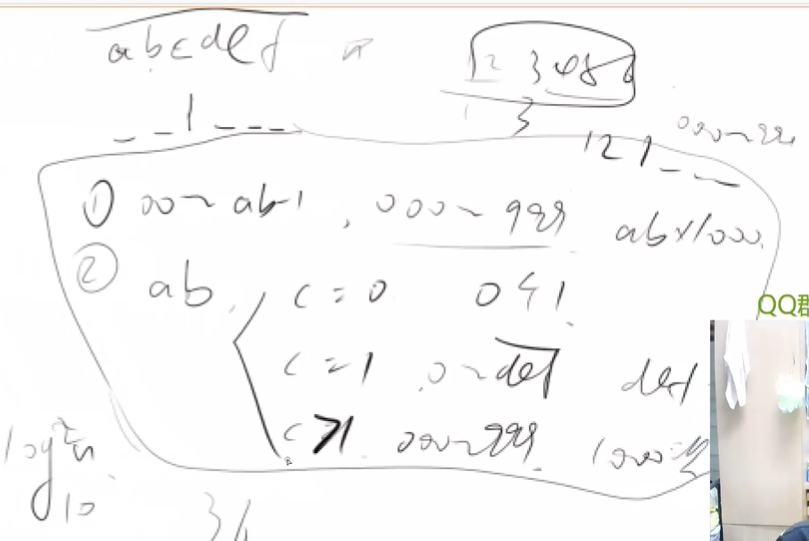 abcdef
1 2 3 4 5 6
3
_ _ 1 _ _ _
1 2 1 _ _ _ 000~999
① 00~ab-1, 000~999 ab×1000
② ab,
c=0 0<1
c=1 0~def def
c>1 000~999 1000
QQ群
log₁₀²n